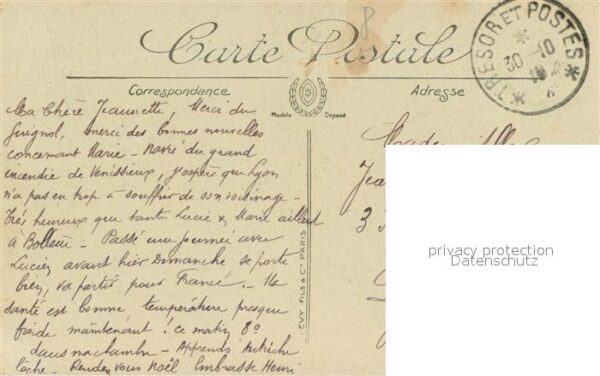 8
Carte Postale
TRESOR ET POSTES
30 -10
18
Correspondance
Adresse
Modèle Déposé
Ma Chère Jeannette, Merci du
Guignol, merci des bonnes nouvelles
concernant Marie - Navré du grand
incendie de Vénissieux, j'espère que Lyon
n'a pas eu trop à souffrir de son voisinage -
Très heureux que tante Lucie & Marie aillent
à Bollène - Passé une journée avec
Lucien avant hier Dimanche se porte
bien, va partir pour France. - Ma
santé est bonne, température presque
froide maintenant! ce matin 8°
dans ma chambre - Apprends Autriche
lâche - Rendez vous Noël Embrasse Henri
EVY FILS & Cie PARIS
3
privacy protection
Datenschutz